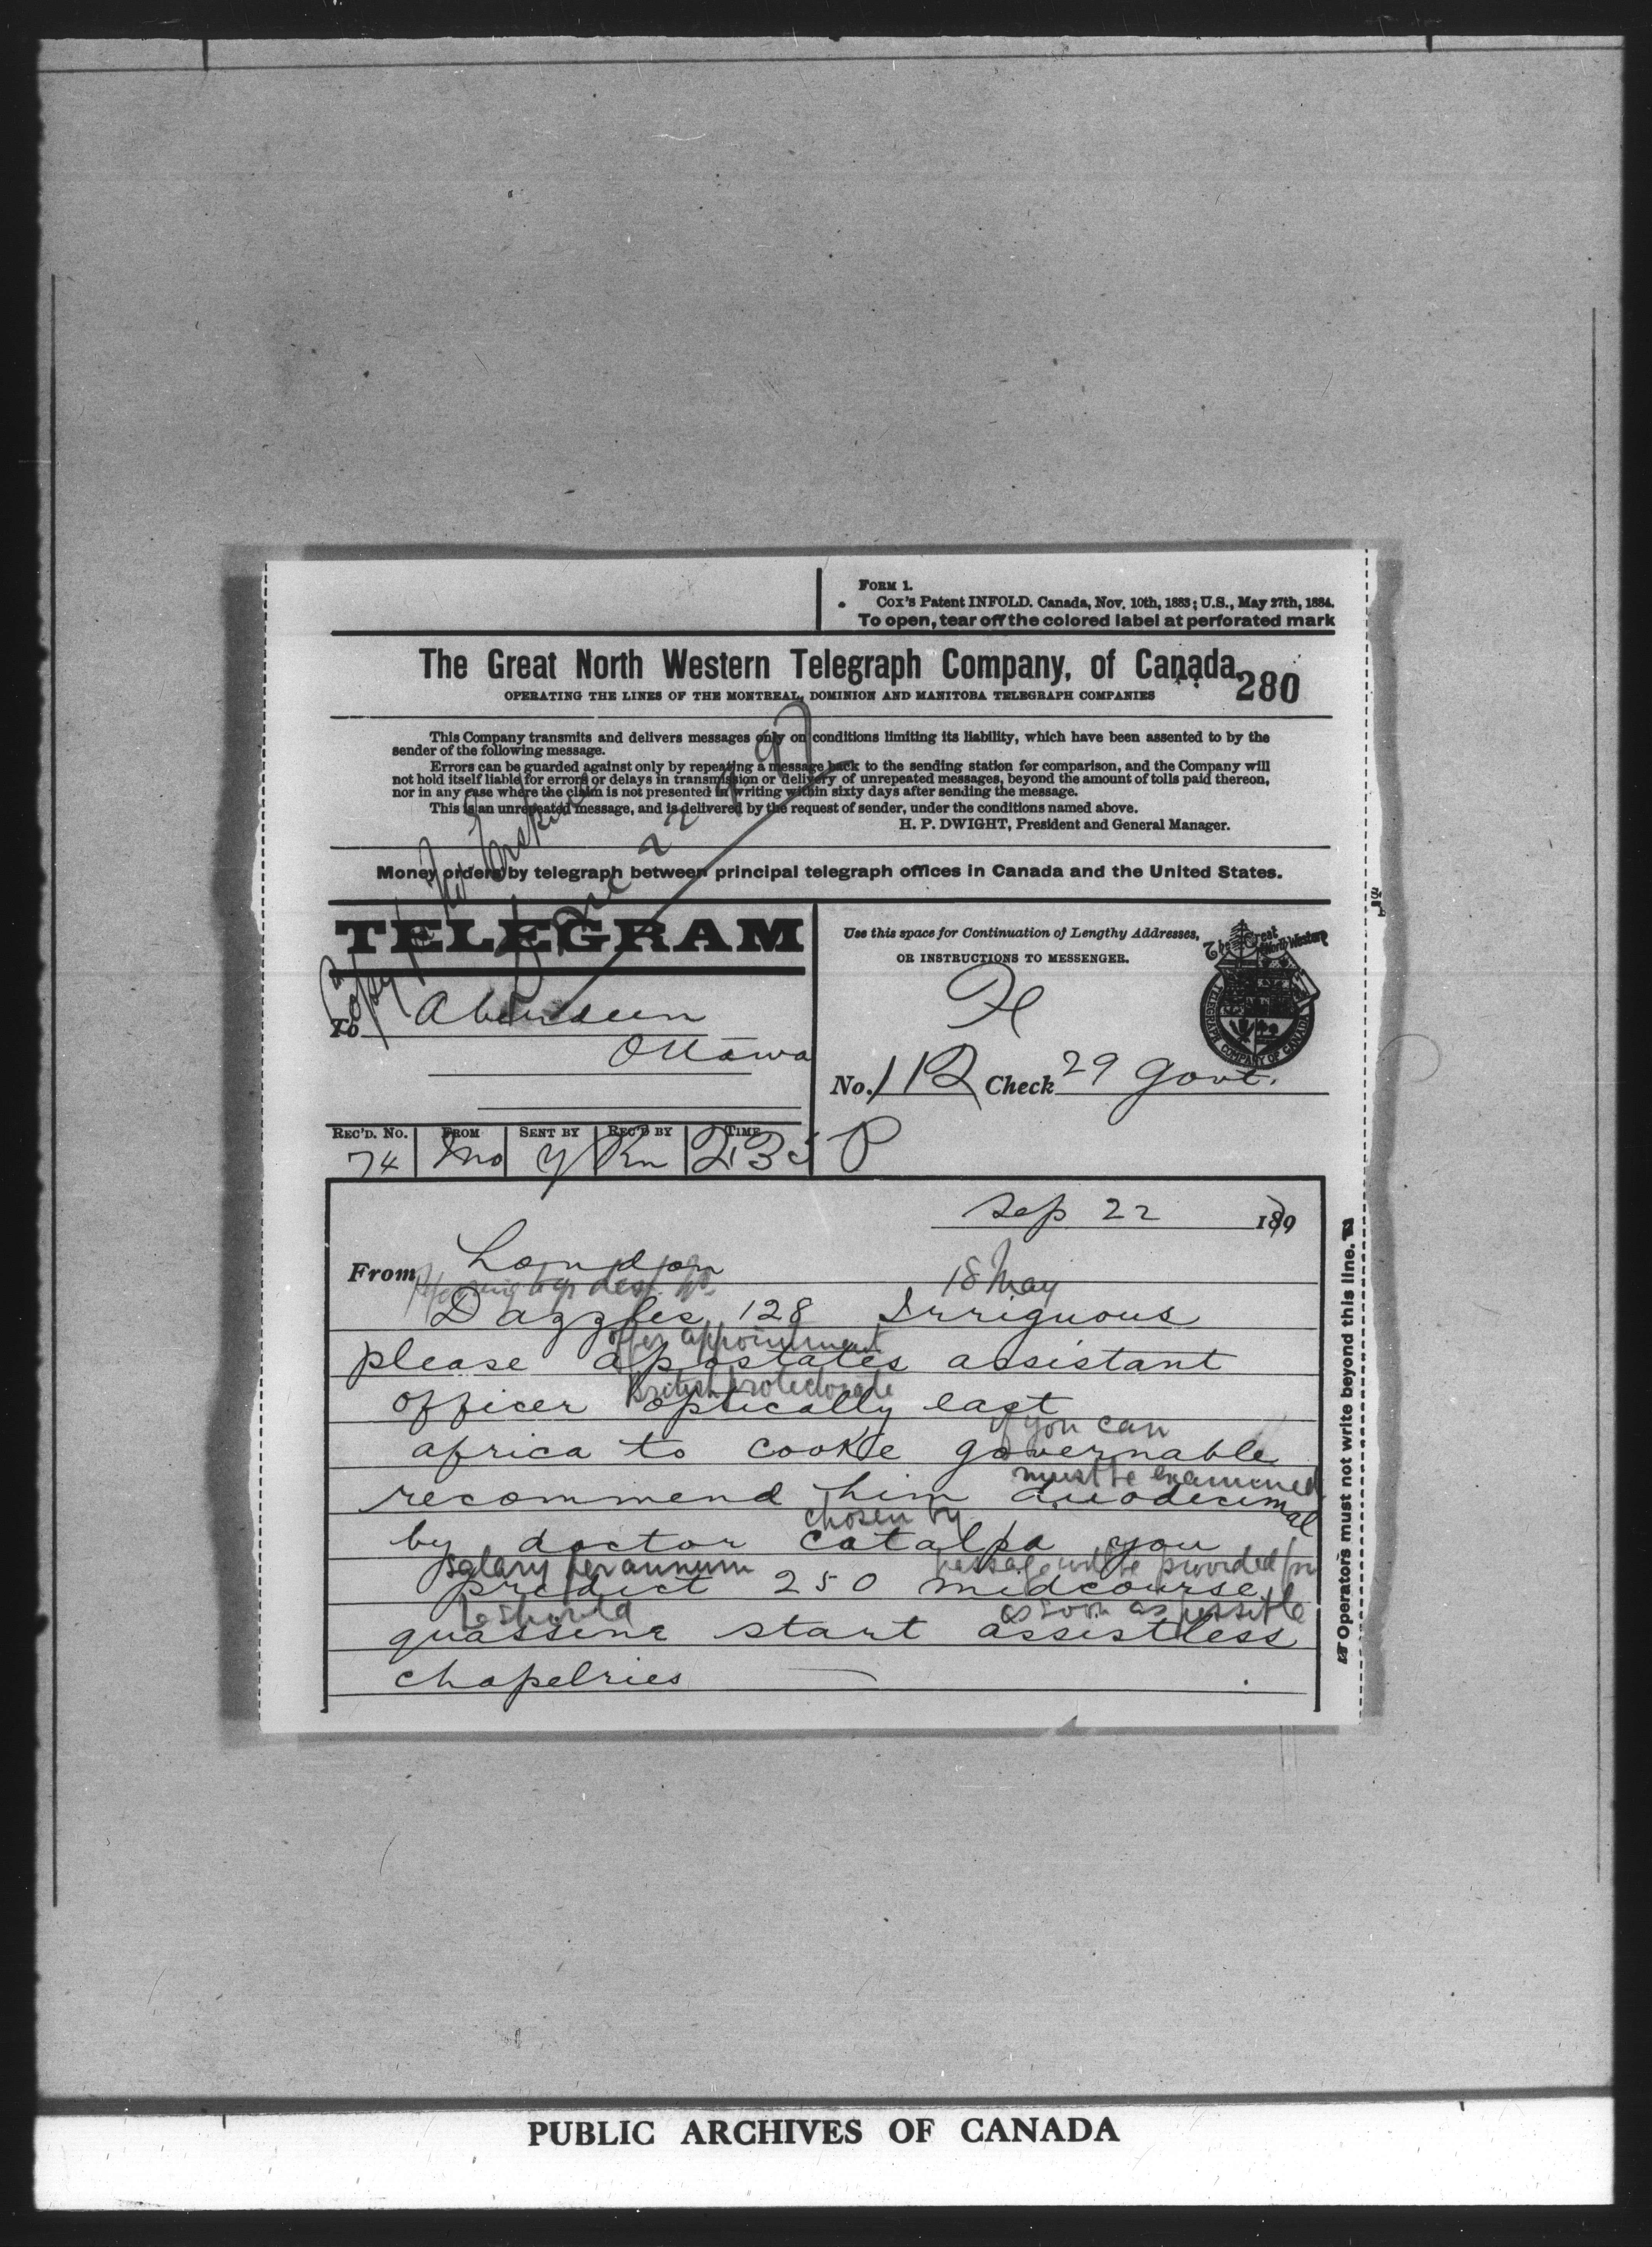 FORM 1.
Cox's Patent INFOLD. Canada, Nov. 10th, 1883; U.S., May 27th, 1884.
To open, tear off the colored label at perforated mark
The Great North Western Telegraph Company, of Canada.
280
OPERATING THE LINES OF THE MONTREAL, DOMINION AND MANITOBA TELEGRAPH COMPANIES
This Company transmits and delivers messages only on conditions limiting its liability, which have been assented to by the
sender of the following message.
Errors can be guarded against only by repeating a message back to the sending station for comparison, and the Company will
not hold itself liable for errors or delays in transmission or delivery of unrepeated messages, beyond the amount of tolls paid thereon,
nor in any case where the claim is not presented in writing within sixty days after sending the message.
This is an unrepeated message, and is delivered by the request of sender, under the conditions named above.
H. P. DWIGHT, President and General Manager.
Money orders by telegraph between principal telegraph offices in Canada and the United States.
TELEGRAM
Copy
To Aberdeen
Ottawa
Use this space for Continuation of Lengthy Addresses,
OR INSTRUCTIONS TO MESSENGER.
The Great North Western
TELEGRAPH COMPANY OF CANADA
No. 112 Check 29 Govt.
REC'D. NO. FROM SENT BY REC'D BY TIME
74 Mo y Rn 235 P
Sep 22 189
From London
18 May
Dazzles 128 Irriguous
offer appointment
please apostates assistant
British protectorate
officer optically east
if you can
africa to cooke governable
must be examined
recommend him duodecimal
chosen by
by doctor catalpa you
salary per annum passage will be provided for
predict 250 midcourse
he should as soon as possible
quassine start assistless
chapelries
Operators must not write beyond this line.
PUBLIC ARCHIVES OF CANADA